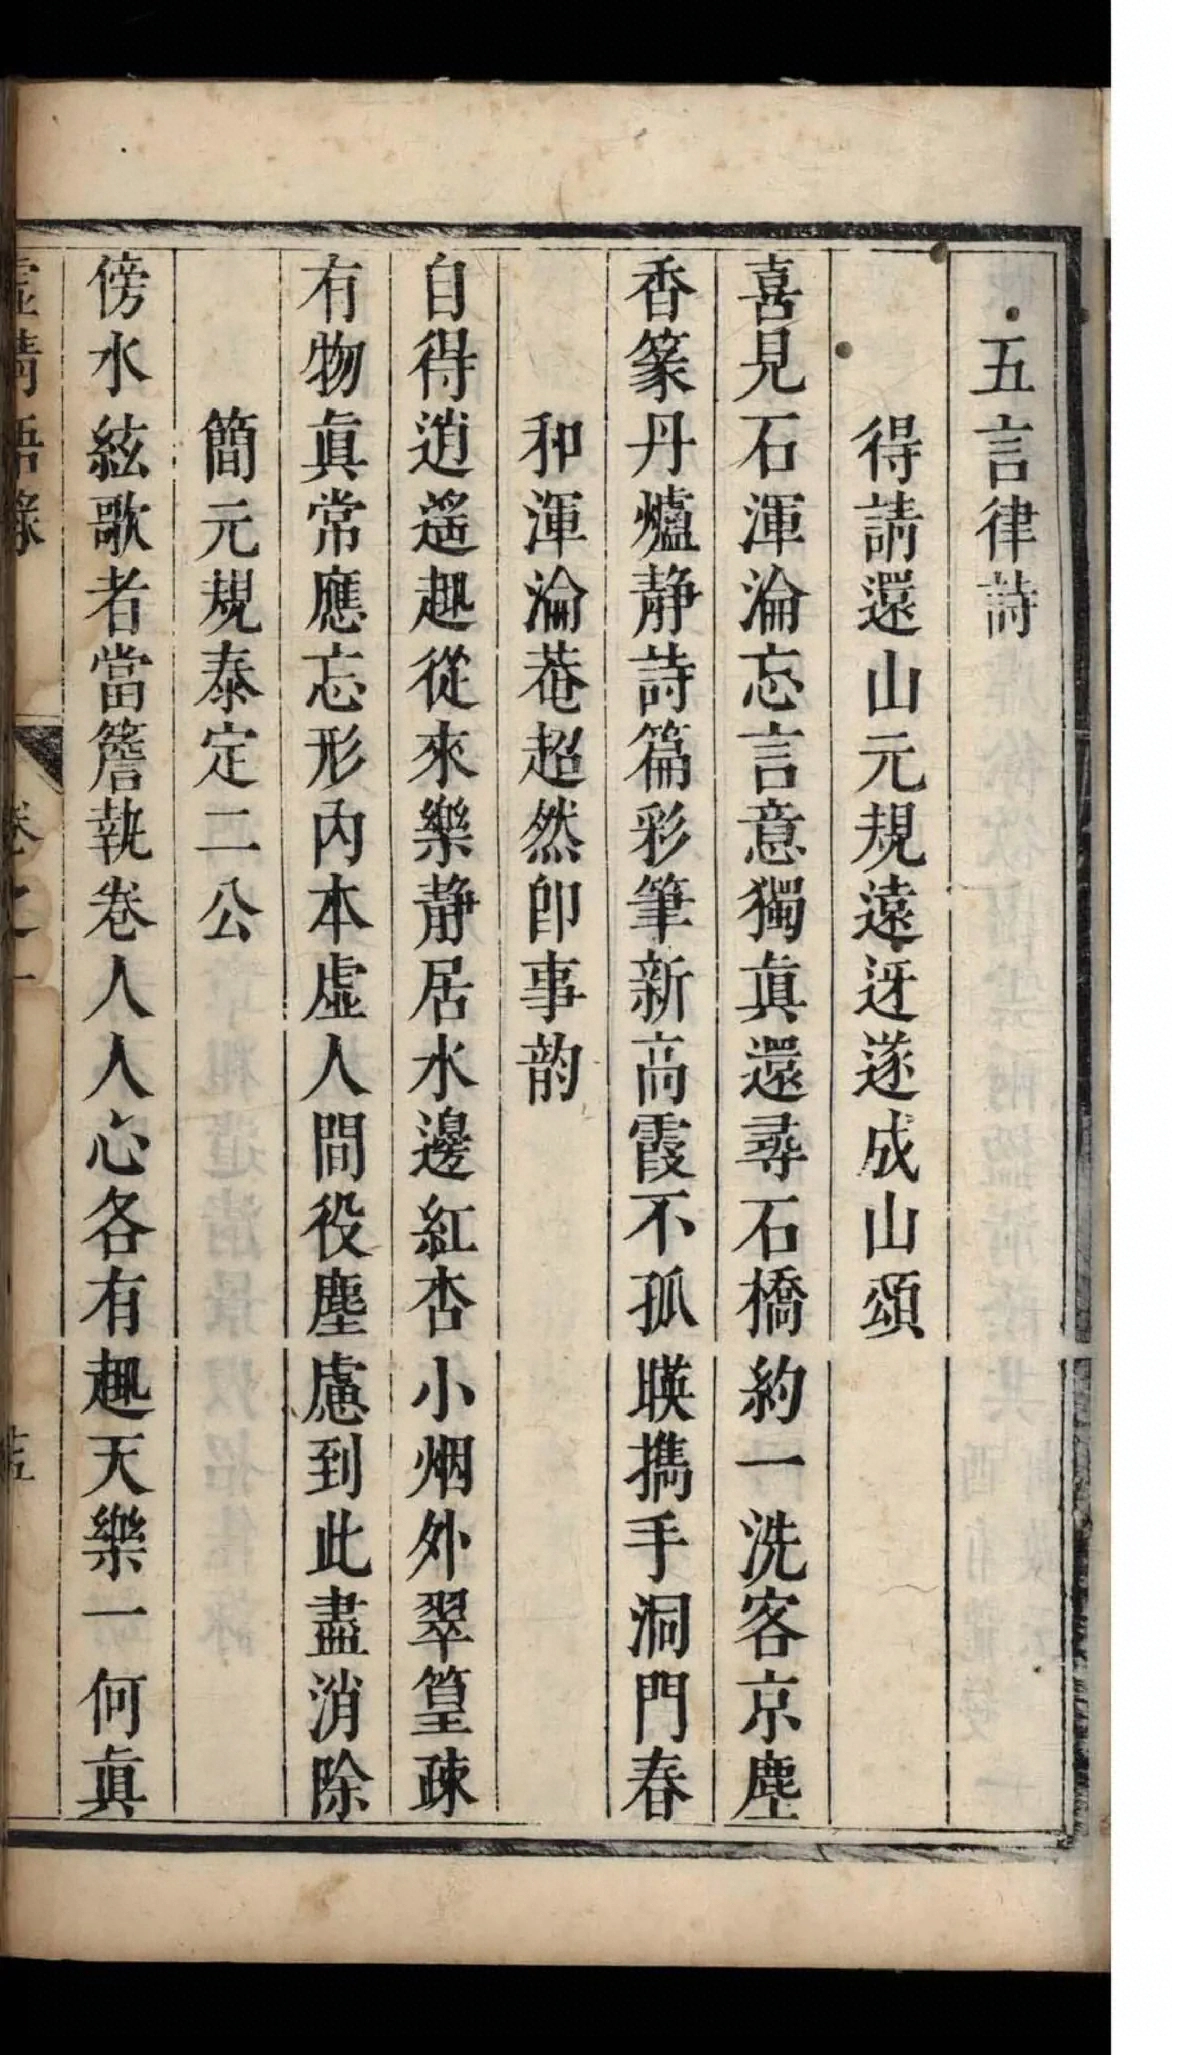 五言律詩
得請還山元規遠迓遂成山頌
喜見石渾淪忘言意獨真還尋石橋約一洗客京塵
香篆丹爐静詩篇彩筆新高霞不孤暎攜手洞門春
和渾淪菴超然卽事韵
自得逍遙趣從來樂静居水邊紅杏小烟外翠篁疎
有物眞常應忘形內本虛人間役塵慮到此盡消除
簡元規泰定二公
傍水絃歌者當簷執卷人人心各有趣天樂一何眞
靖語錄 卷之一